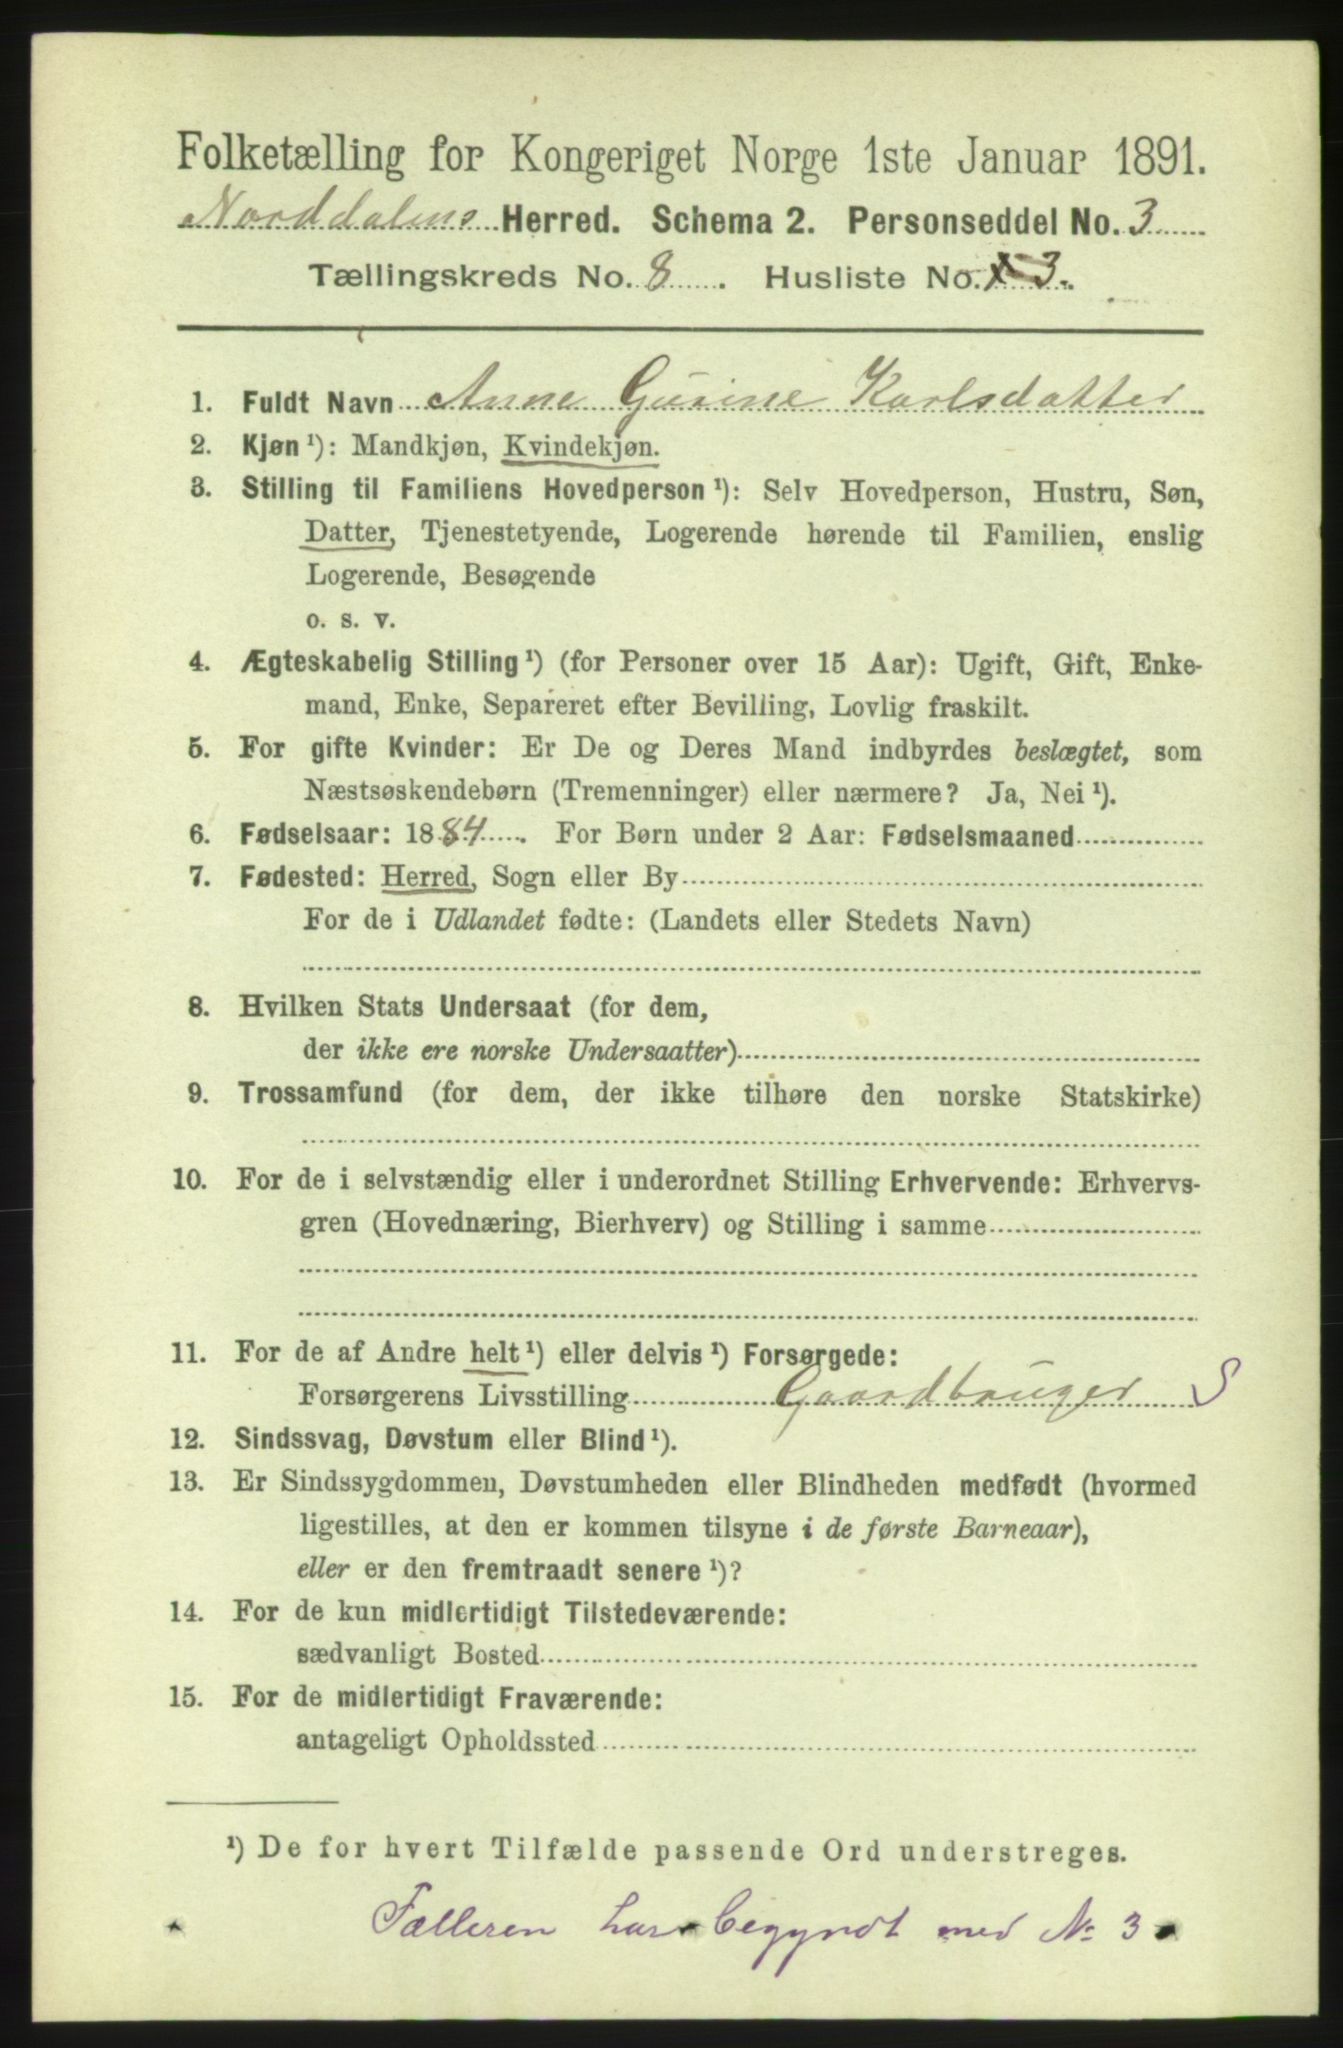 Folketælling for Kongeriget Norge 1ste Januar 1891.
Norddalens Herred. Schema 2. Personseddel No. 3
Tællingskreds No. 8. Husliste No. 3.
1. Fuldt Navn Anne Gurine Karlsdatter
2. Kjøn ¹): Mandkjøn, Kvindekjøn.
3. Stilling til Familiens Hovedperson ¹): Selv Hovedperson, Hustru, Søn,
Datter, Tjenestetyende, Logerende hørende til Familien, enslig
Logerende, Besøgende
o. s. v.
4. Ægteskabelig Stilling ¹) (for Personer over 15 Aar): Ugift, Gift, Enke-
mand, Enke, Separeret efter Bevilling, Lovlig fraskilt.
5. For gifte Kvinder: Er De og Deres Mand indbyrdes beslægtet, som
Næstsøskendebørn (Tremenninger) eller nærmere? Ja, Nei ¹).
6. Fødselsaar: 1884. For Børn under 2 Aar: Fødselsmaaned
7. Fødested: Herred, Sogn eller By
For de i Udlandet fødte: (Landets eller Stedets Navn)
8. Hvilken Stats Undersaat (for dem,
der ikke ere norske Undersaatter)
9. Trossamfund (for dem, der ikke tilhøre den norske Statskirke)
10. For de i selvstændig eller i underordnet Stilling Erhvervende: Erhvervs-
gren (Hovednæring, Bierhverv) og Stilling i samme
11. For de af Andre helt ¹) eller delvis ¹) Forsørgede:
Forsørgerens Livsstilling Gaardbruger S
12. Sindssvag, Døvstum eller Blind ¹).
13. Er Sindssygdommen, Døvstumheden eller Blindheden medfødt (hvormed
ligestilles, at den er kommen tilsyne i de første Barneaar),
eller er den fremtraadt senere ¹)?
14. For de kun midlertidigt Tilstedeværende:
sædvanligt Bosted
15. For de midlertidigt Fraværende:
antageligt Opholdssted
¹) De for hvert Tilfælde passende Ord understreges.
Tælleren har begyndt med No 3